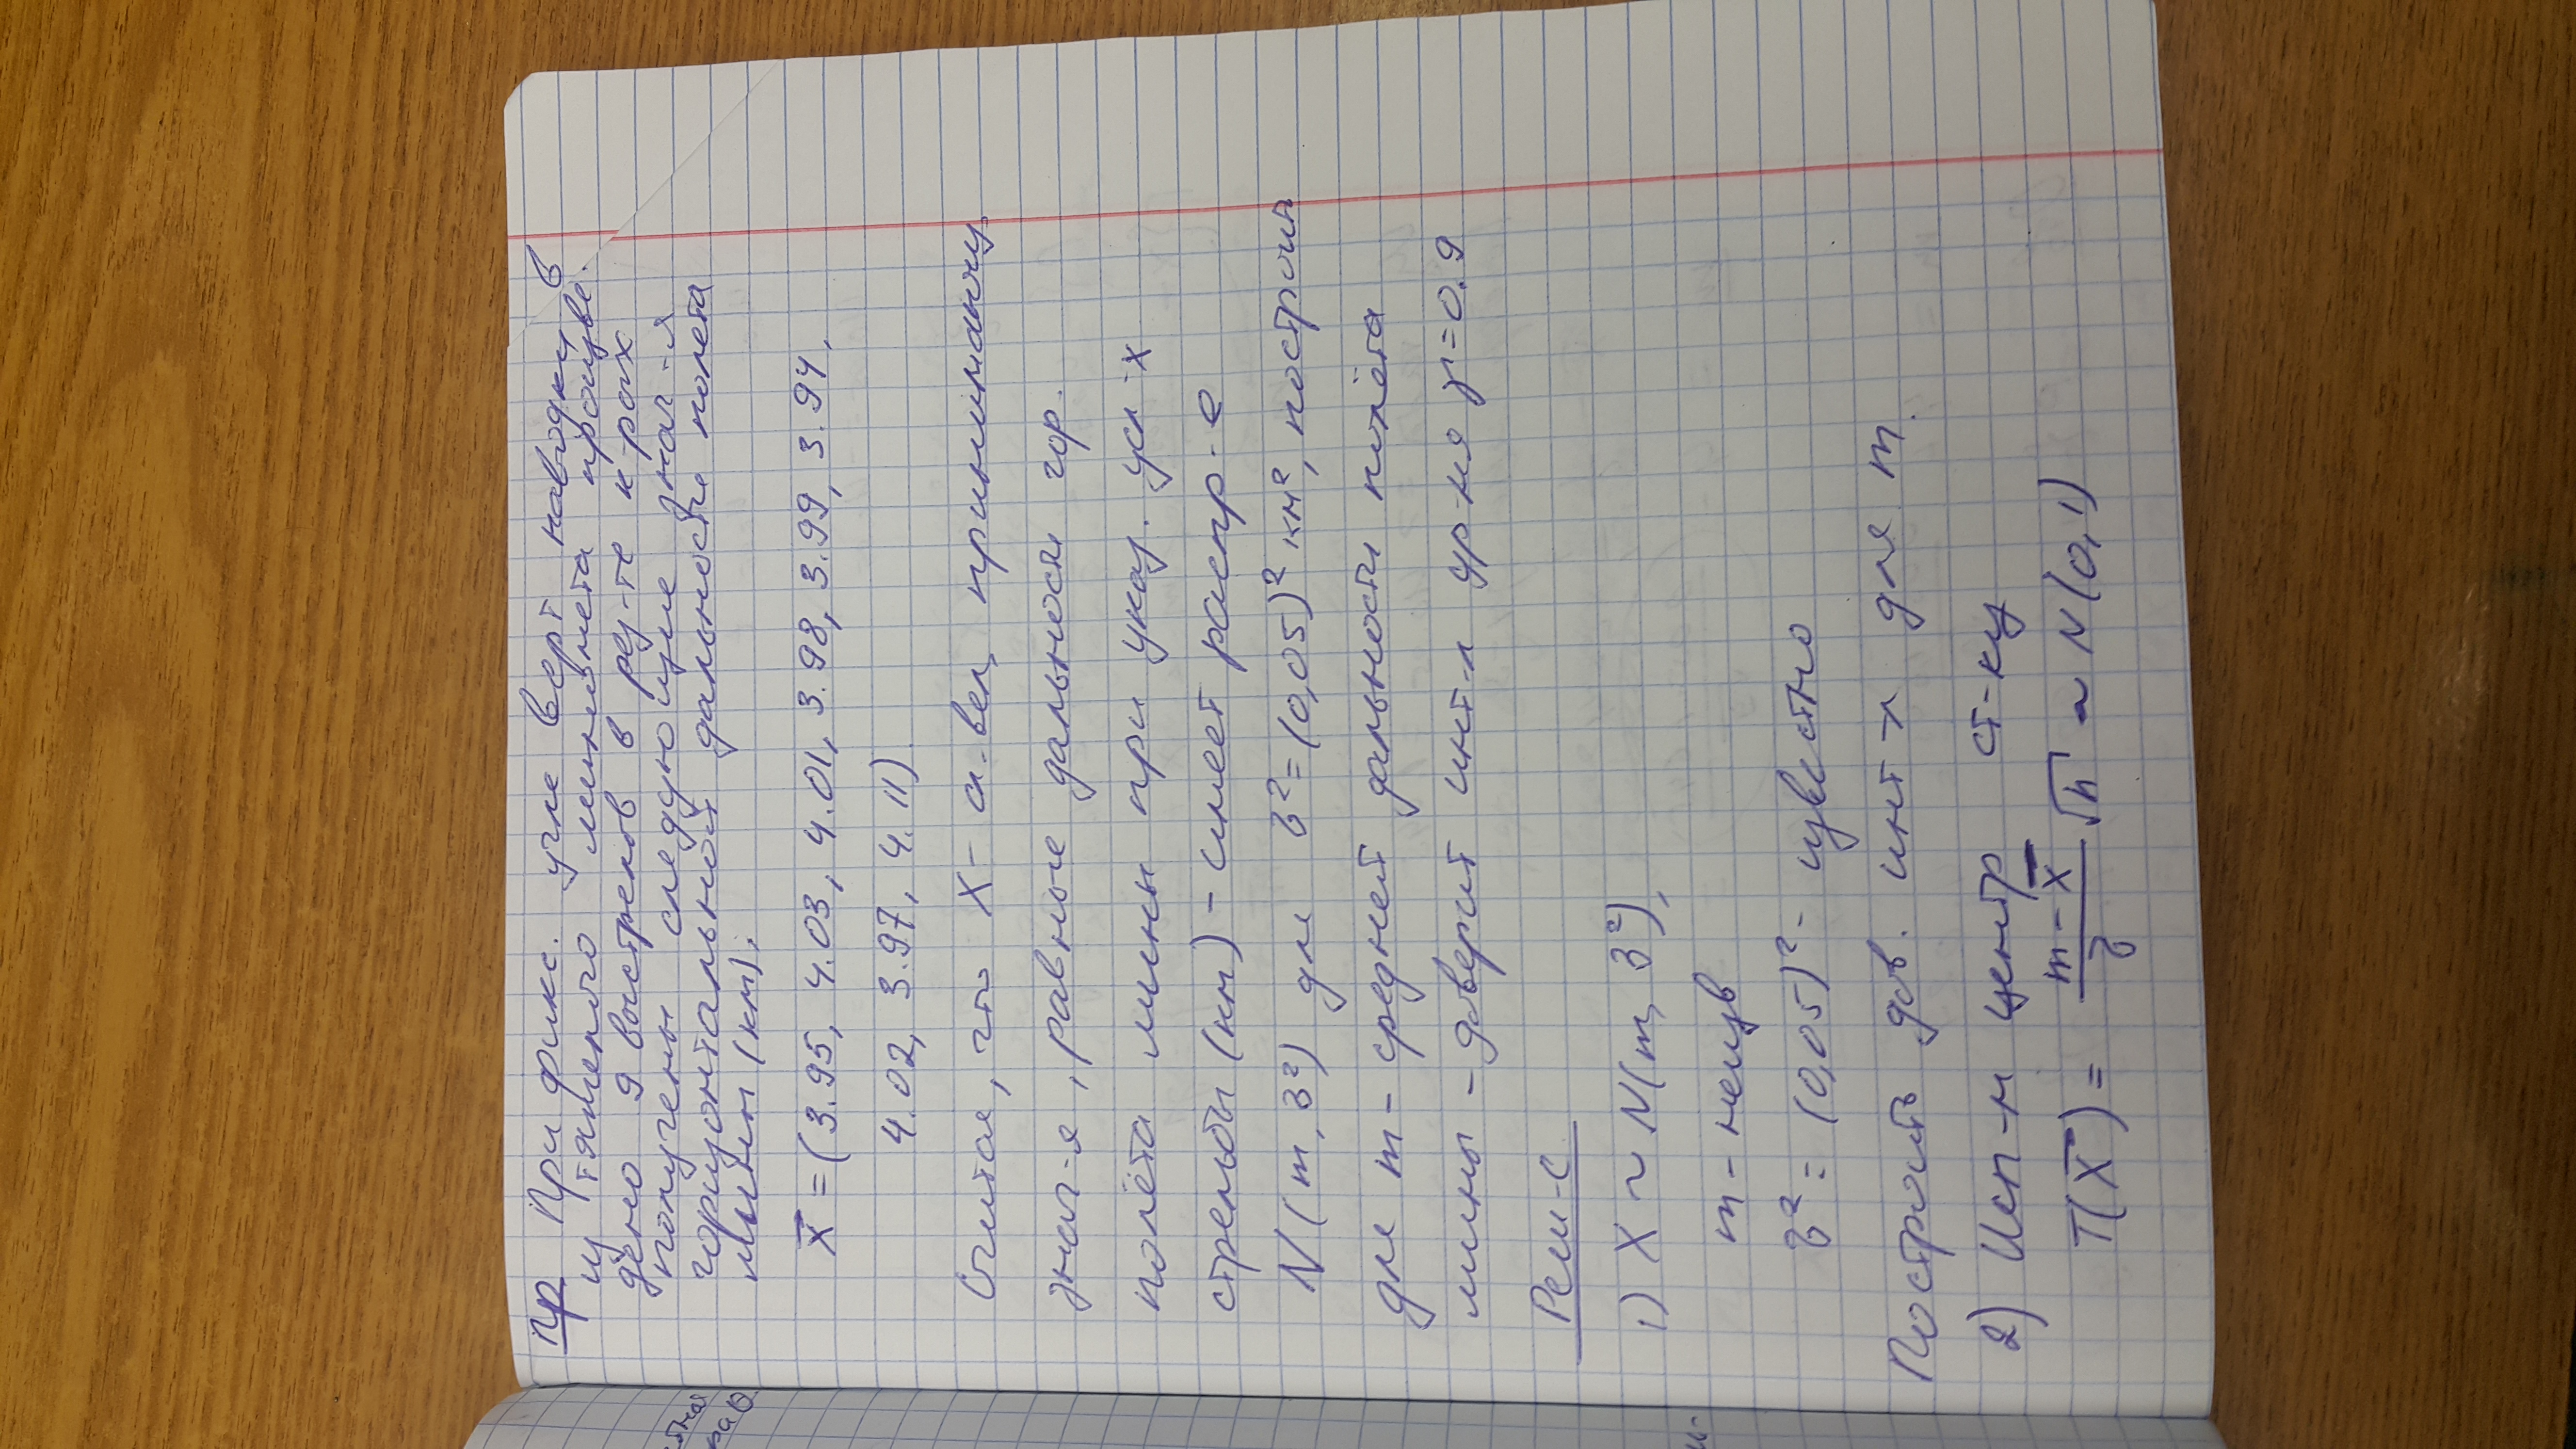 Пр При фикс. угле верт наводки в
из тяжелого миномета произве-
дено 9 выстрелов в рез-те к-рых
получены следующие знач-я
горизонтальной дальности полета
мины (км):
X⃗ = (3.95, 4.03, 4.01, 3.98, 3.99, 3.94,
4.02, 3.97, 4.11)
Считая, что X - сл. вел, принимающ.
знач-я, равные дальности гор.
полёта мины при указ. усл-х
стрельбы (км) - имеет распр-е
N(m, σ²) где σ² = (0,05)² км², построить
для m - средней дальности полёта
мины - доверит инт-л ур-ня γ = 0.9
Реш-е
1) X ~ N(m, σ²),
m - неизв
σ² = (0,05)² - известно
Построить дов. инт-л для m.
2) Исп-м центр ст-ку
T(X⃗) = (m - X̅)/σ √n ~ N(0,1)
стная
ра θ